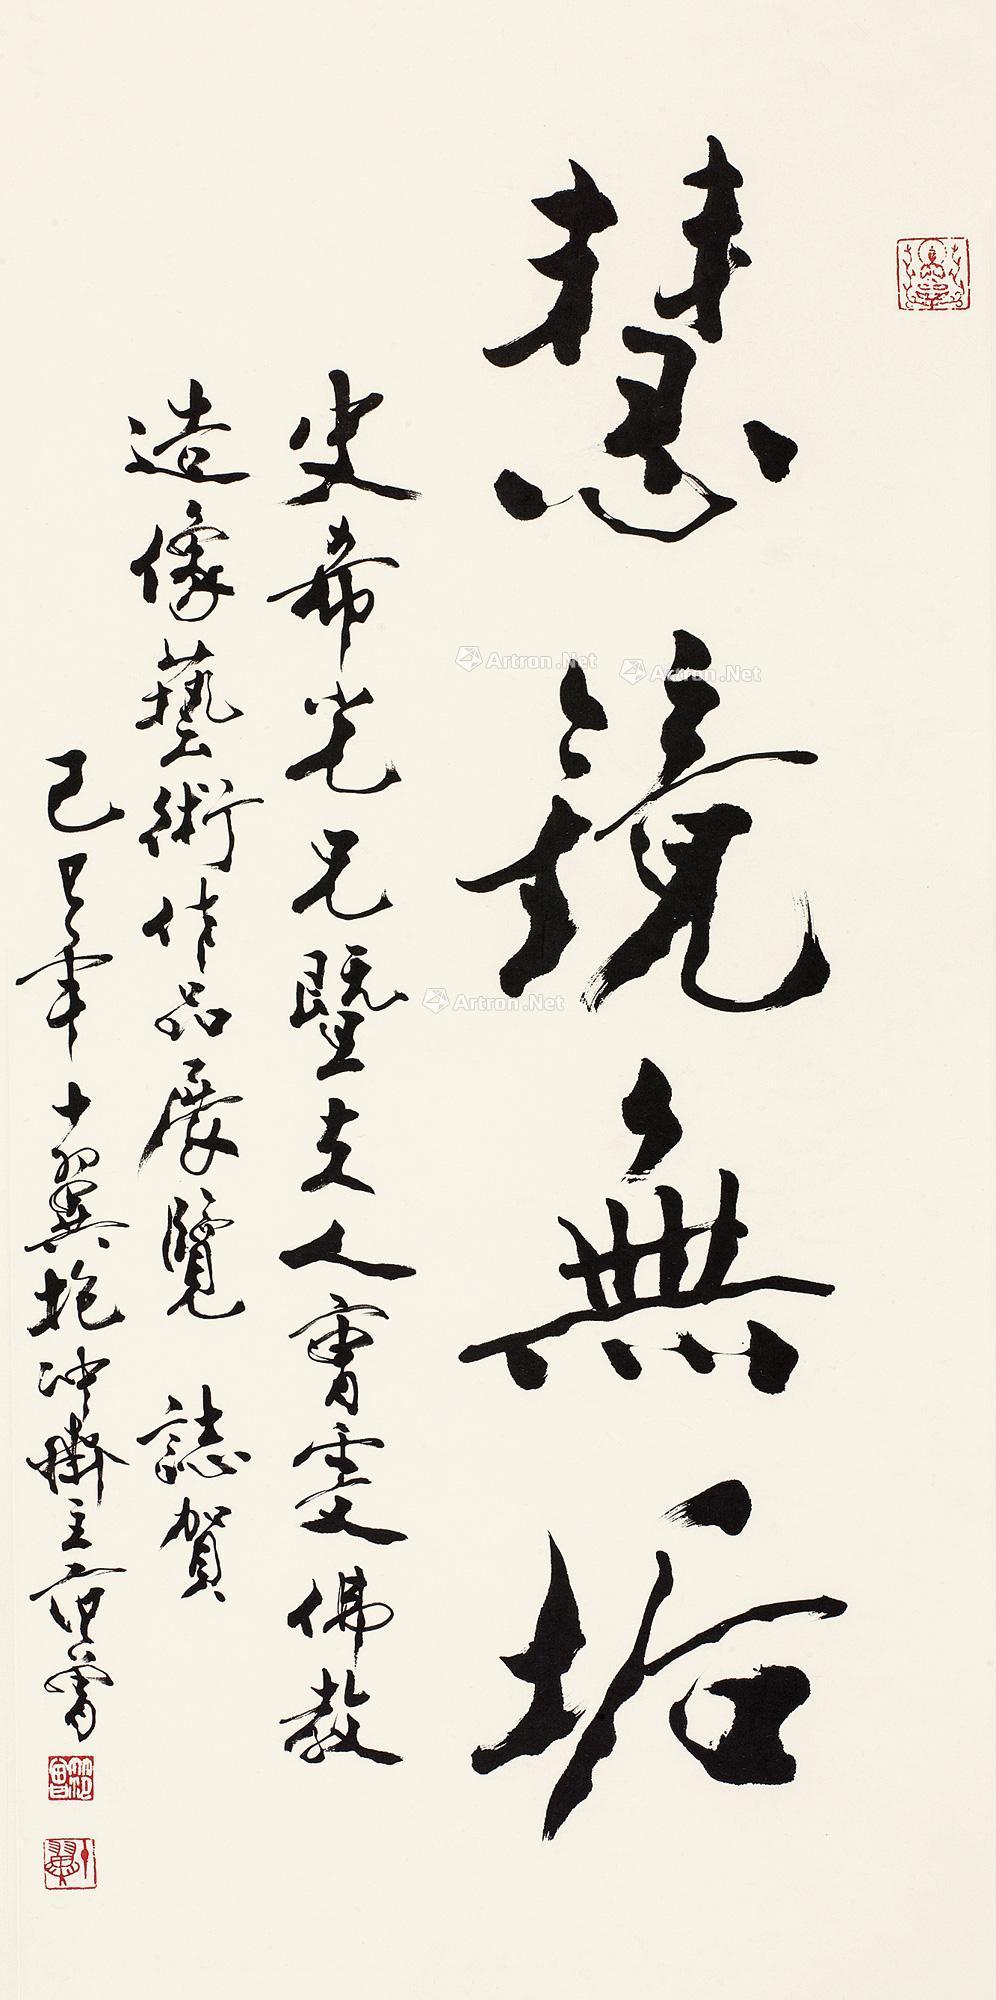 慧鏡無垢
史希光兄暨夫人曹雯佛教
造像藝術作品展覽 誌賀
己巳年十翼抱沖齋主范曾
Artron.Net
Artron.Net
Artron.Net